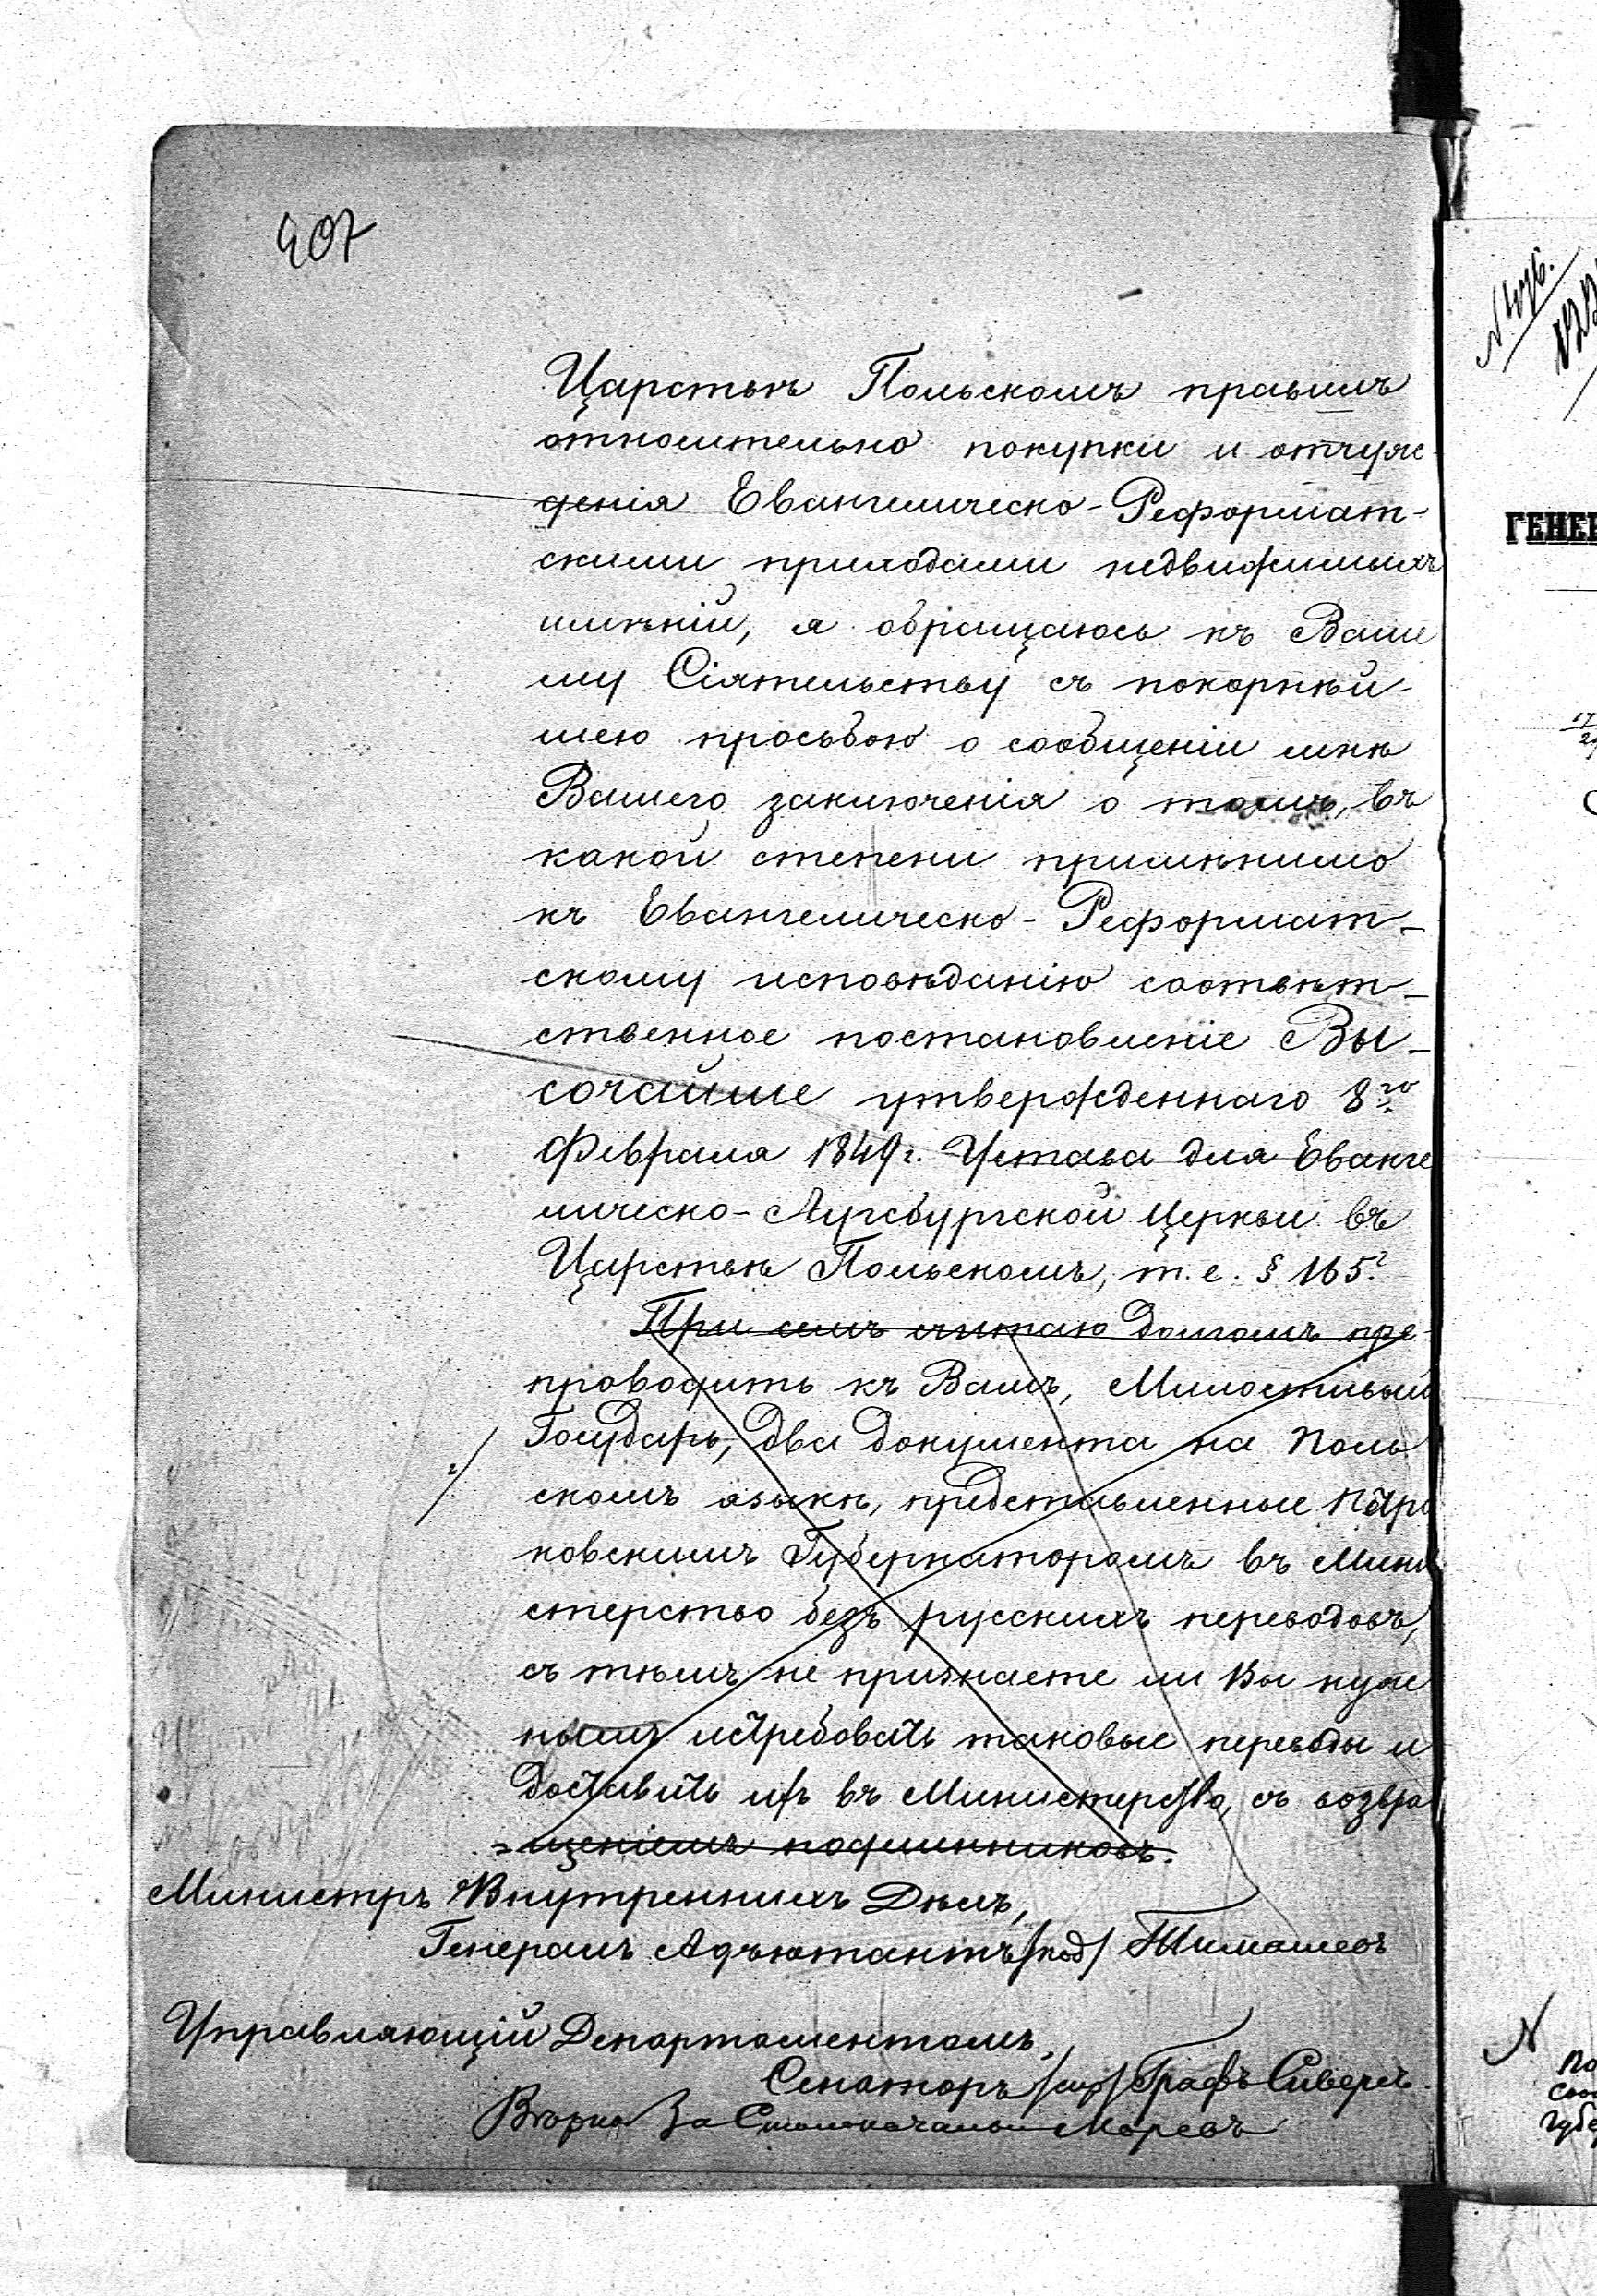 407
Царствѣ Польскомъ правилъ
относительно покупки и отчуж-
денія Евангелическо-Реформат-
скими приходами недвижимыхъ
имѣній, я обращаюсь къ Ваше
му Сіятельству съ покорнѣй-
шею просьбою о сообщеніи мнѣ
Вашего заключенія о томъ, въ
какой степени примѣнимо
къ Евангелическо-Реформат-
скому исповѣданію соотвѣт-
ственное постановленіе Вы-
сочайше утвержденнаго 8го
Февраля 1849 г. Устава для Еванге
лическо-Аугсбургской Церкви въ
Царствѣ Польскомъ, т.е. § 165?
При семъ считаю долгомъ пре-
проводить къ Вамъ, Милостивый
Государь, два документа на Поль
скомъ языкѣ, представленные Петро
ковскимъ Губернаторомъ въ Мини
стерство безъ русскихъ переводовъ,
съ тѣмъ не признаете ли Вы нуж
нымъ истребовать таковые переводы и
доставить ихъ въ Министерство, съ возвра
щеніемъ подлинниковъ.
Министръ Внутреннихъ Дѣлъ,
Генералъ Адъютантъ /под/ Тимашевъ
Управляющій Департаментомъ,
Сенаторъ /скр/ Графъ Сиверсъ.
Вѣрно За Столоначальн Моревъ
ГЕНЕ
N
по
соо
губе